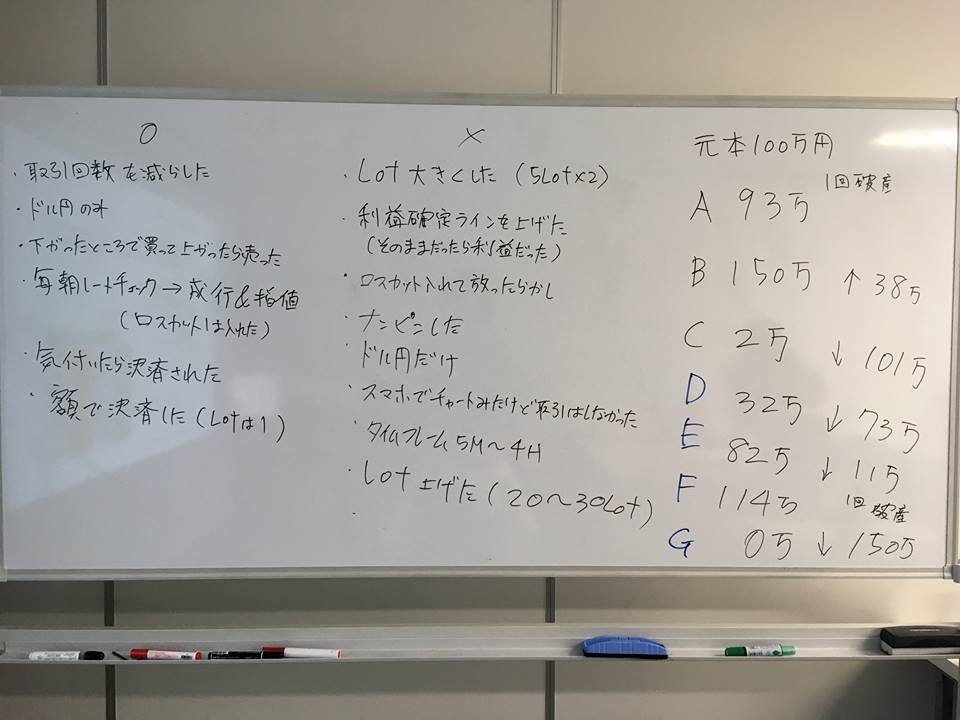 ○
・取引回数を減らした
・ドル円のみ
・下がったところで買って上がったら売った
・毎朝レートチェック→成行&指値
(ロスカットは入れた)
・気付いたら決済された
・額で決済した(Lotは1)
×
・Lot大きくした(5Lot×2)
・利益確定ラインを上げた
(そのままだったら利益だった)
・ロスカット入れて放ったらかし
・ナンピンした
・ドル円だけ
・スマホでチャートみたけど取引はしなかった
・タイムフレーム5M〜4H
・Lot上げた(20〜30Lot)
元本100万円
A 93万 1回破産
B 150万 ↑38万
C 2万 ↓101万
D 32万 ↓73万
E 82万 ↓11万
F 114万 1回破産
G 0万 ↓150万